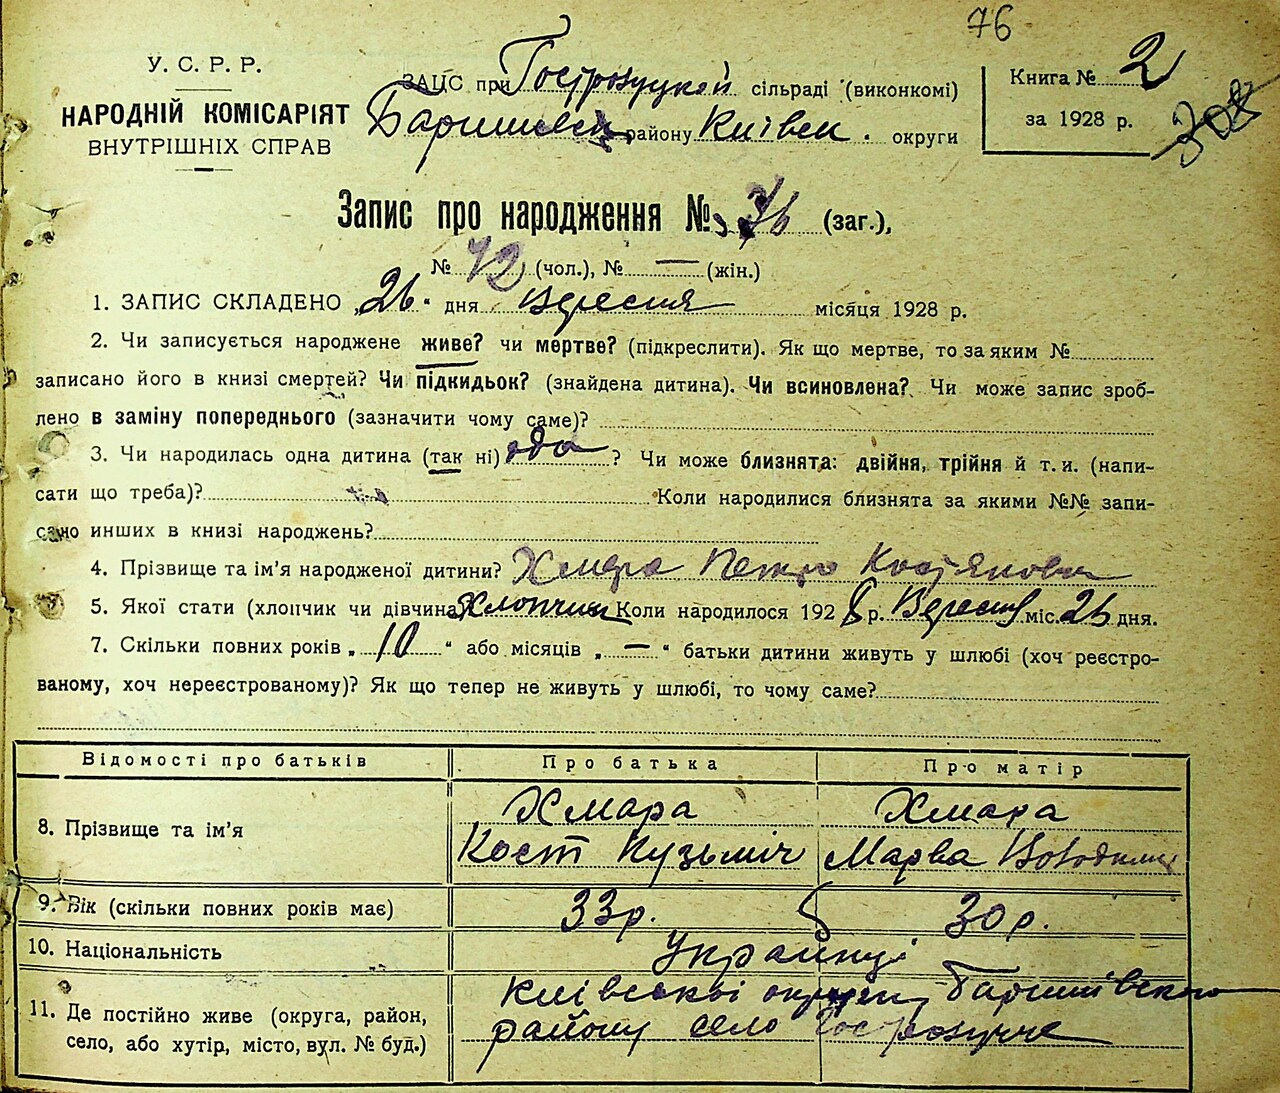 76
У. С. Р. Р.
НАРОДНІЙ КОМІСАРІЯТ
ВНУТРІШНІХ СПРАВ
ЗАЦС при Гостролуцкой сільраді (виконкомі)
району Київск. округи
Книга № 2
за 1928 р.
Запис про народження № 76 (заг.),
№ 42 (чол.), № — (жін.)
1. ЗАПИС СКЛАДЕНО „26“ дня Вересня місяця 1928 р.
2. Чи записується народжене живе? чи мертве? (підкреслити). Як що мертве, то за яким №
записано його в книзі смертей? Чи підкидьок? (знайдена дитина). Чи всиновлена? Чи може запис зроб-
лено в заміну попереднього (зазначити чому саме)?
3. Чи народилась одна дитина (так ні) ? Чи може близнята: двійня, трійня й т. и. (напи-
сати що треба)? Коли народилися близнята за якими №№ запи-
сано инших в книзі народжень?
4. Прізвище та ім’я народженої дитини? Хмара Петро
5. Якої стати (хлопчик чи дівчина) Хлопчик Коли народилося 1928 р. Вересня міс. 26 дня.
7. Скільки повних років „10“ або місяців „—“ батьки дитини живуть у шлюбі (хоч реєстро-
ваному, хоч нереєстрованому)? Як що тепер не живуть у шлюбі, то чому саме?
Відомості про батьків Про батька Про матір
8. Прізвище та ім’я Хмара Хмара
Кост Кузьміч Марва
9. Вік (скільки повних років має) 33 р. 30 р.
10. Національність Українці
11. Де постійно живе (округа, район, Київскої округи, Баришівского
село, або хутір, місто, вул. № буд.) району село Гостролуччє